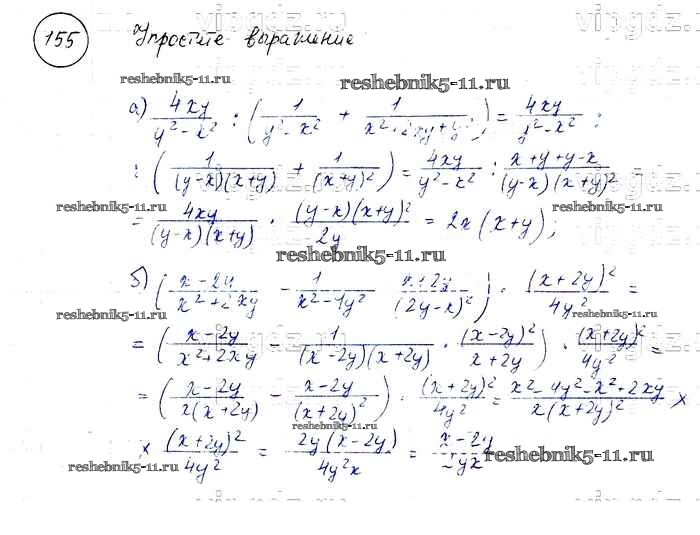 155 Упростите выражение
reshebnik5-11.ru
reshebnik5-11.ru
а) 4xy/(y² - x²) : (1/(y² - x²) + 1/(x² + 2xy + y²)) = 4xy/(y² - x²) :
: (1/((y-x)(x+y)) + 1/(x+y)²) = 4xy/(y² - x²) : (x+y+y-x)/((y-x)(x+y)²)
reshebnik5-11.ru
reshebnik5-11.ru
= 4xy/((y-x)(x+y)) · (y-x)(x+y)²/2y = 2x(x+y);
reshebnik5-11.ru
б) ((x-2y)/(x²+2xy) - 1/(x²-4y²) : (x+2y)/(2y-x)²) · (x+2y)²/4y² =
reshebnik5-11.ru
reshebnik5-11.ru
= ((x-2y)/(x²+2xy) - 1/((x-2y)(x+2y)) · (x-2y)²/(x+2y)) · (x+2y)²/4y² =
= ((x-2y)/(x(x+2y)) - (x-2y)/(x+2y)²) · (x+2y)²/4y² = (x²-4y²-x²+2xy)/(x(x+2y)²) ×
× (x+2y)²/4y² = 2y(x-2y)/4y²x = (x-2y)/2yx
reshebnik5-11.ru
reshebnik5-11.ru
vipgdz.ru